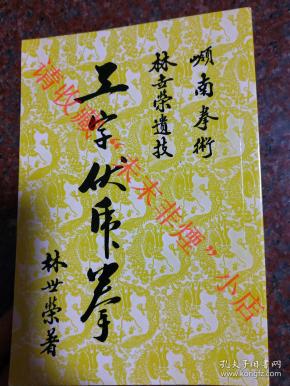 嶺南拳術
林世榮遺技
工字伏虎拳
林世榮著
请收藏“木木非煙”小店
孔夫子旧书网